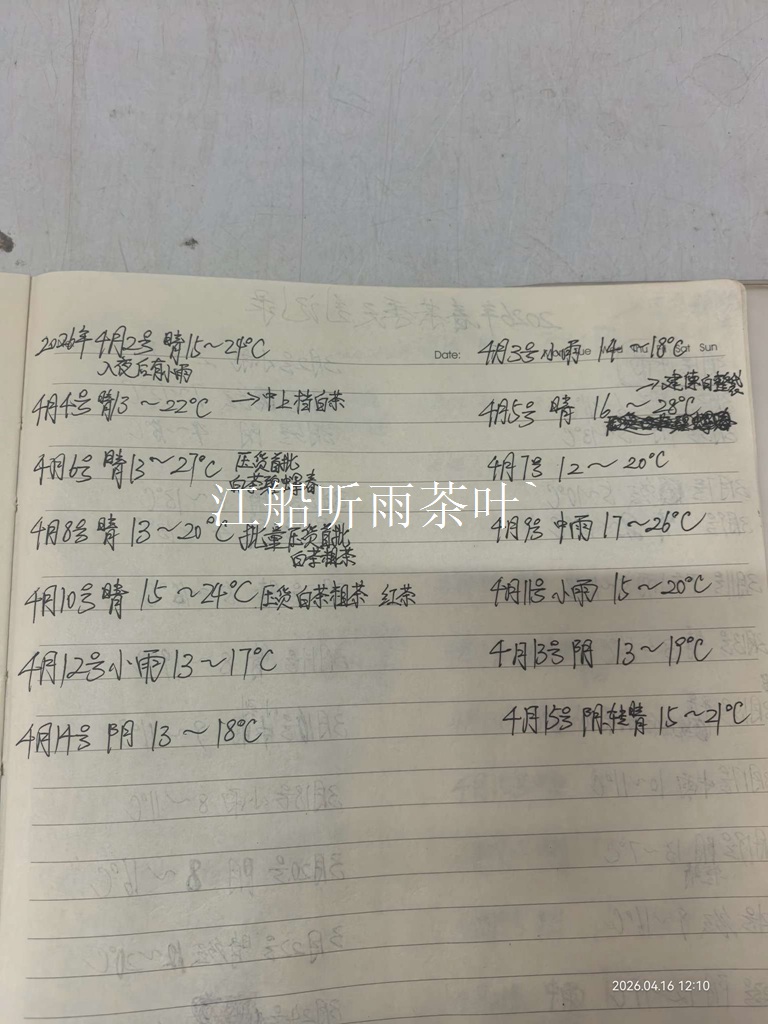 2026年4月2号 晴15~24°C
入夜后有小雨
Date: 4月3号小雨 14~18°C Sat Sun
4月4号晴13~22°C →中上档白茶
→建德白整袋
4月5号 晴 16~28°C
4月6号 晴13~27°C 压货首批
白茶碧螺春
4月7号 12~20°C
江船听雨茶叶
4月8号 晴 13~20°C 批量压货首批
白茶粗茶
4月9号 中雨 17~26°C
4月10号晴 15~24°C压货白茶粗茶 红茶
4月11号小雨 15~20°C
4月12号小雨13~17°C
4月13号阴 13~19°C
4月14号 阴 13~18°C
4月15号 阴转晴 15~21°C
2026.04.16 12:10